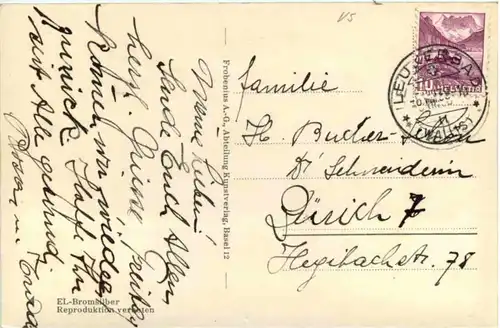 Meine Lieben!
Sende Euch Allen
herzl. Grüsse
kommen wir wieder
zurück. Hoffe Ihr
seid Alle gesund
EL-Bromsilber
Reproduktion verboten
Frobenius A.-G., Abteilung Kunstverlag, Basel 12
VS
LEUKERBAD
(WALLIS)
10
Familie
H. Bucher-
Dr Schneiderin
Zürich 7
Hegibachstr. 78